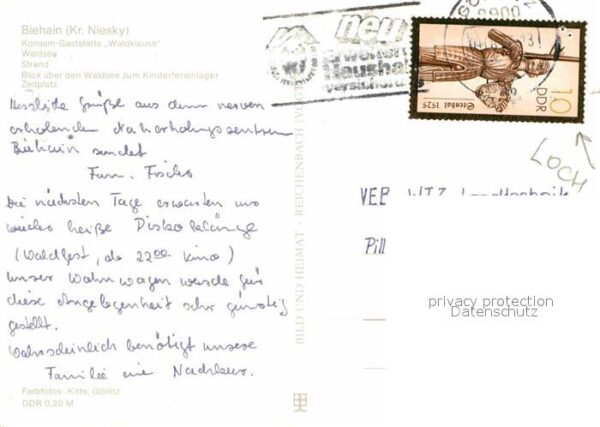 Biehain (Kr. Niesky)
Konsum-Gaststätte „Waldklause"
Waldsee
Strand
Blick über den Waldsee zum Kinderferienlager
Zeltplatz
Herzliche Grüße aus dem
Naherholungszentrum
Biehain sendet
Fam. Fischer
Die nächsten Tage erwarten uns
wieder heiße Diskoklänge
(Waldfest, ab 22 00 Kino)
Unser Wohnwagen wurde für
diese Angelegenheit sehr günstig
gestellt.
Wahrscheinlich benötigt unsere
Familie nie Nachbarn.
Farbfotos: Kitte, Görlitz
DDR 0,20 M
BILD UND HEIMAT · REICHENBACH
neu
Erweiterte
Haushalt
versicherung
8900
Stendal 1525
DDR
10
LOCH
VEB WTZ Landtechnik
Pill
privacy protection
Datenschutz